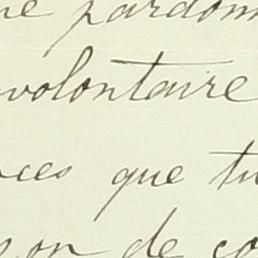 pardonn
volontaire
ces que tu
son de co